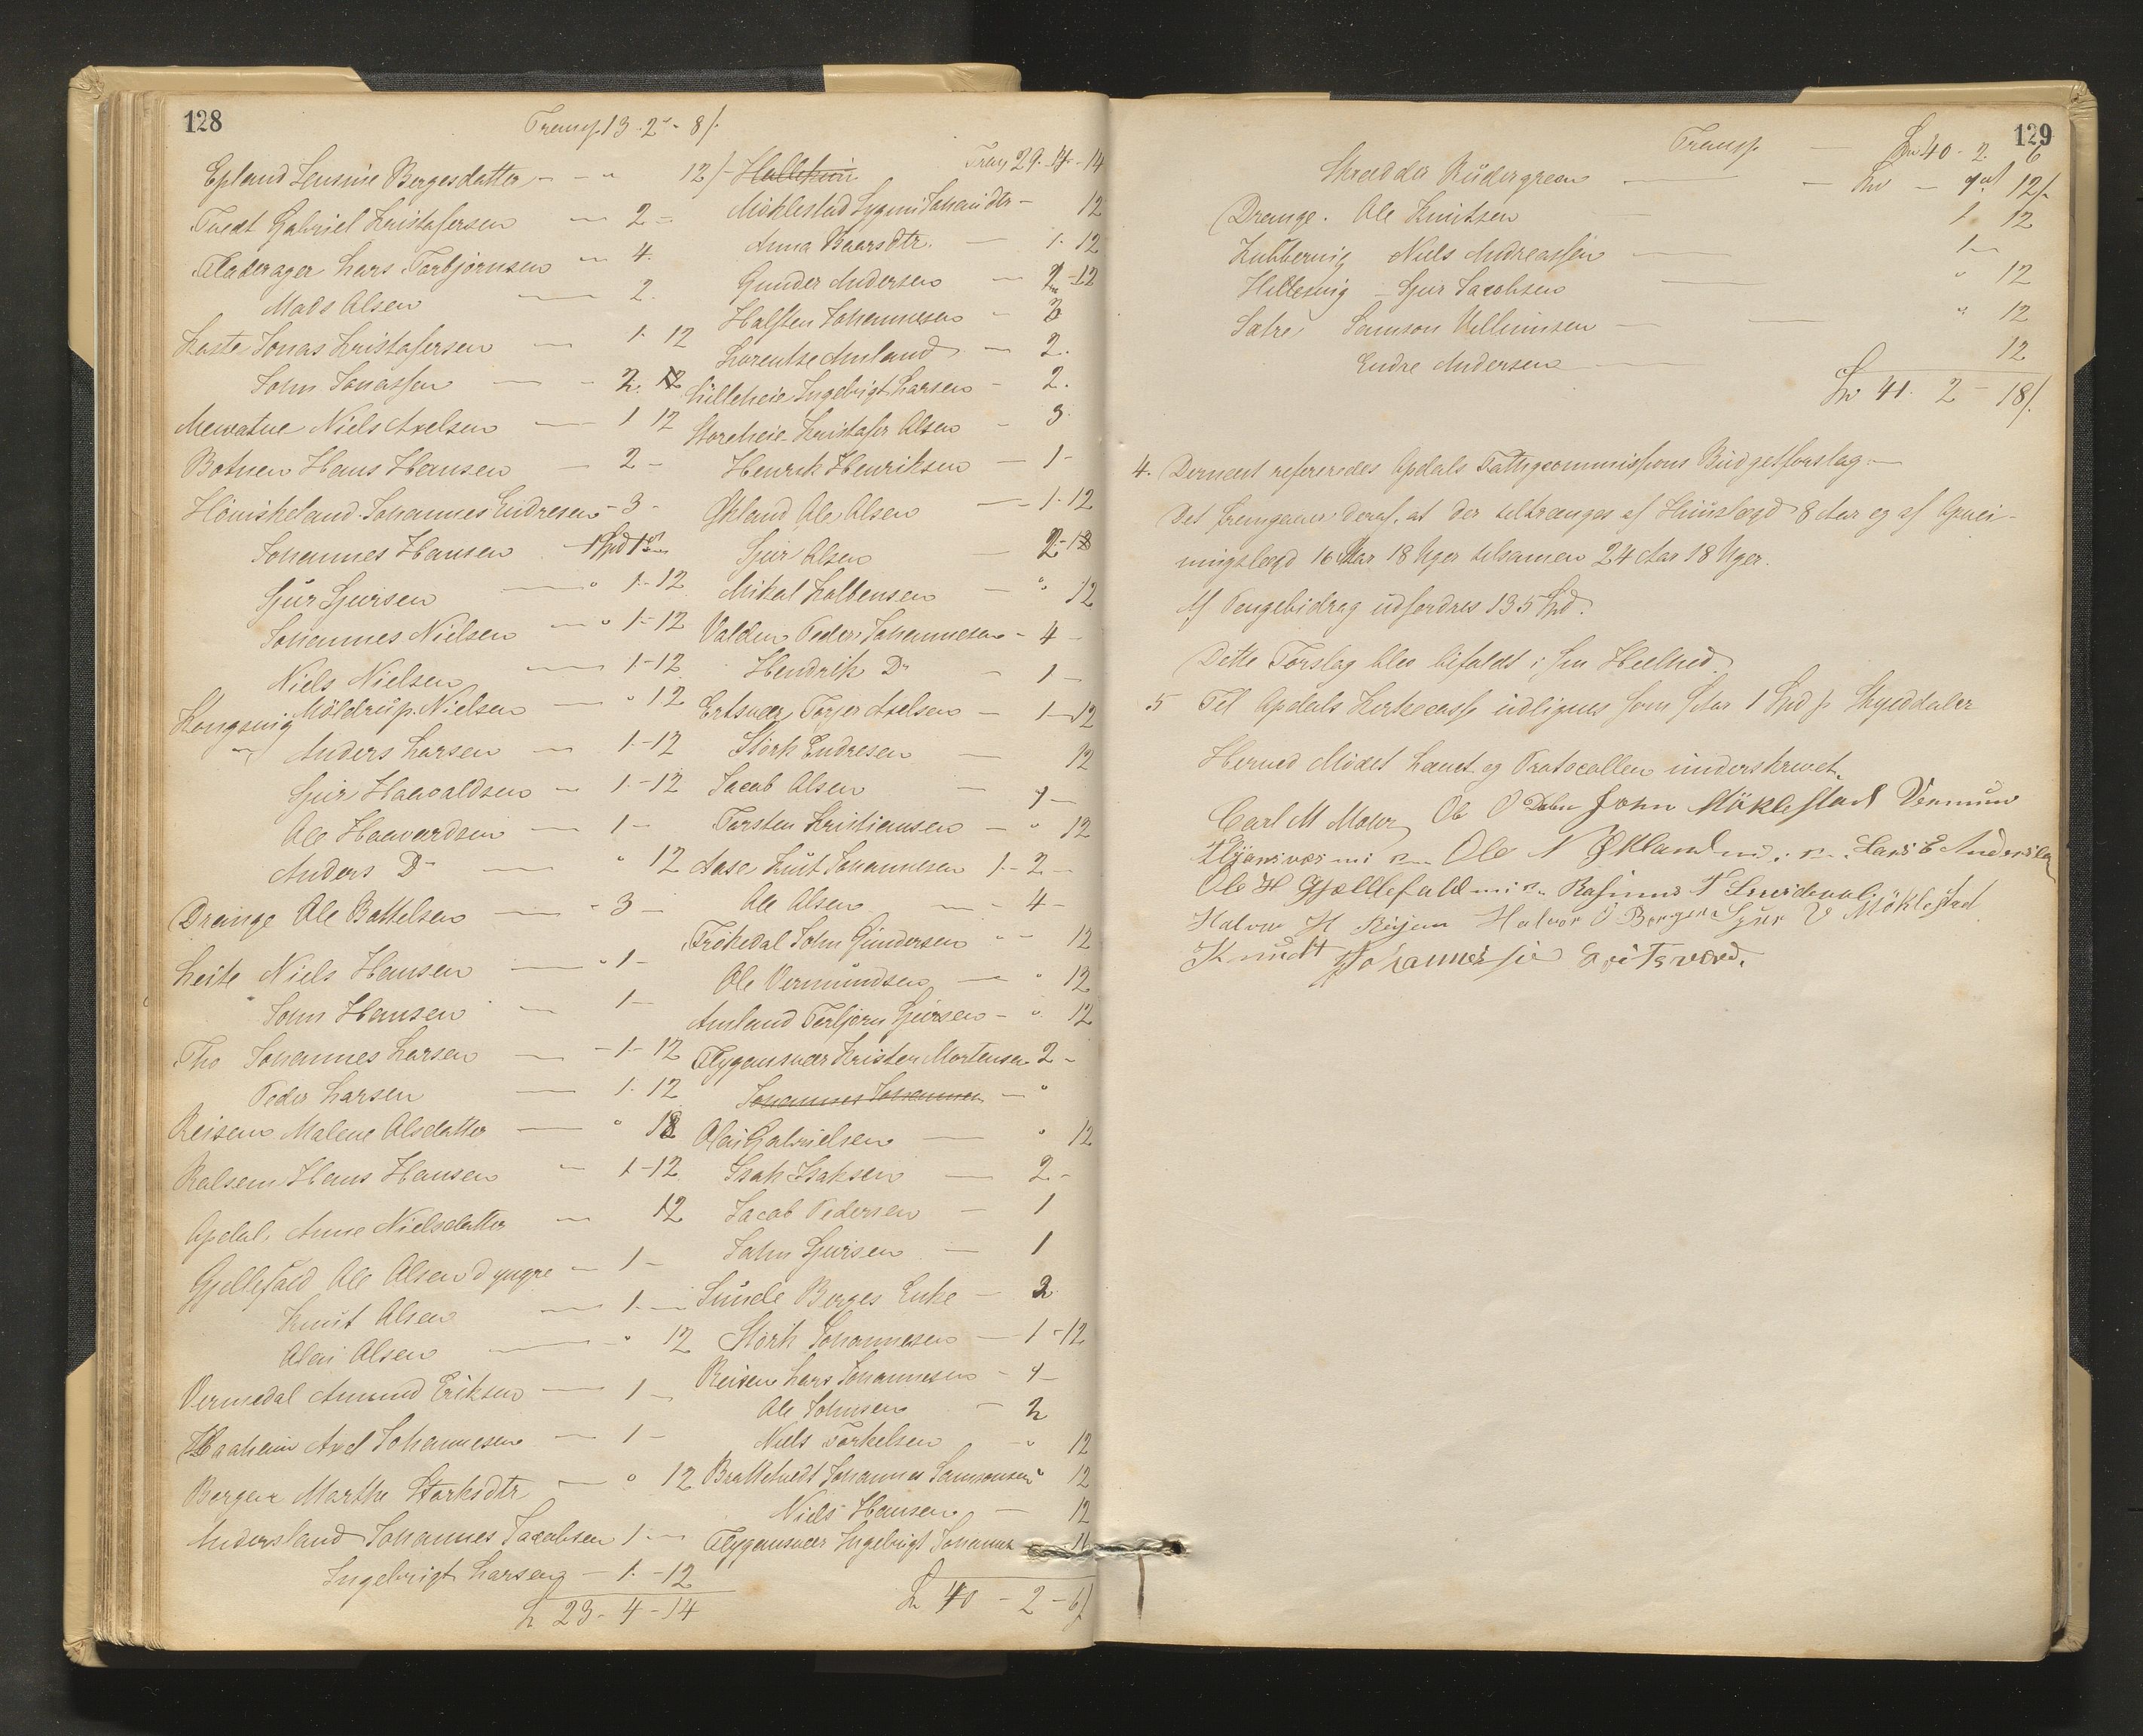 128
Transp. 13. 2 - 8 ß.
Epland Lensine Bergesdatter - - " 12 ß
Tvedt Gabriel Kristofersen - 2 -
Fladerager Lars Torbjørnsen - 4.
Mads Olsen - 2.
Koste Jonas Kristofersen - 1. 12
John Jonassen - 2.
Mevatne Niels Axelsen - 1 12
Botnen Hans Hansen - 2 -
Høviskeland Johannes Endresen - 3 -
Johannes Hansen
Sjur Sjursen - " 1 - 12
Johannes Nielsen - " 1 - 12
Niels Nielsen - 1 - 12
Kongsvig Møldrup Nielsen - " 12
" Anders Larsen - 1 - 12
Sjur Haavaldsen - 1 - 12
Ole Haavardsen - 1 -
Anders Do - " 12
Drange Ole Battelsen - 3 -
Leite Niels Hansen - " 1 -
John Hansen - 1 -
Tho Johannes Larsen - 1 - 12
Peder Larsen - 1. 12
Reisen Malene Olsdatter - "
Kalsem Hans Hansen - 1 - 12
Opdal, Anne Nielsdatter - 12
Gjellefald Ole Olsen d yngre - 1 -
Knut Olsen - 1. -
Olai Olsen - " 12
Vermedal Amund Eriksen - 1 -
Haaheim Axel Johannesen - 1 -
Bergen Marthe Størksdtr - " 12
Andersland Johannes Jacobsen 1. -
Ingebrigt Larsen - 1. - 12
23 - 4 - 14
Transp 29 - 4 - 14
Halleheim
Møklestad Johansdtr - 12
Anna Baarsdtr. - 1. 12
Gunder Andersen - 12
Halsten Johannesen -
Lorentze Amland - 2.
Lilleheie Ingebrigt Larsen - 2.
Storeheie Kristofer Olsen - 3
Henrik Henriksen - 1 -
Økland Ole Olsen - 1. 12
Sjur Olsen - 2
Mikal Kolbensen - " 12
Valden Peder Johannesen - 4 -
Hendrik Do - 1 -
Ertsvær Torger Axelsen - 1 - 12
Størk Endresen - 12
Jacob Olsen - 1 -
Torsten Kristiansen - " 12
Aase Knut Johannesen 1 - 2 -
Ole Olsen - 4 -
Frøkedal John Gundersen " - 12
Ole Vermundsen - " 12
Amland Torbjørn Sjursen - " 12
Flygansvær Kristen Mortensen 2 -
Johannes Johannesen - "
Olai Gabrielsen - " 12
Isak Isaksen - 2 -
Jacob Pedersen - 1
John Sjursen - 1
Sunde Berges Enke - 2
Størk Johannesen - 1 - 12
Reisen Lars Johannesen - 1 -
Ole Johnsen - 2
Niels Torkelsen - " 12
Brattetvedt Johannes Samsonsen " 12
Niels Hansen - 12
Flygansvær Ingebrigt Johannes
40 - 2 - 6 ß
129
Transp. - 40 - 2. 6
Skrædder Rüdergreen - 12 ß.
Drange. Ole Knutsen 1 12
Kubbervig Niels Andreassen - 1 -
Hillesvig - Sjur Jacobsen " 12
Sætre Samson Villumsen - " 12
Endre Andersen - 12
41. 2 - 18 ß.
4. Dernæst refereredes Opdals Fattigcommissions Büdgetforslag. -
Det fremgaaer deraf, at der tiltrænges af Huuslægd 8 Aar og af Omei-
ningslægd 16 Aar 18 Uger tilsamen 24 Aar 18 Uger.
Af Pengebidrag udfordres 135 Spd.
Dette Forslag blev bifaldt i sin Heelhed.
5 Til Opdals Kirkecasse udlignes som ifior 1 Spd pr Skylddaler
Hermed Mødet hævet og Protocollen underskrevet.
Carl M Møler Ole O Dahn John Møklestad Vermun
Flygansvær m. p. Ole N Økland m. p. Lars E Andersland
Ole H Gjellefald m. p. Rasmus T
Halvor H Reisen Halvor O Bergen Sjur V Møklestad
Knudt Johannessen Ertsvaad.